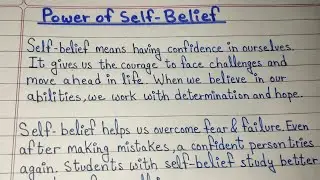 Power of Self-Belief
Self-belief means having confidence in ourselves.
It gives us the courage to face challenges and
move ahead in life. When we believe in our
abilities, we work with determination and hope.
Self-belief helps us overcome fear & failure. Even
after making mistakes, a confident person tries
again. Students with self-belief study better